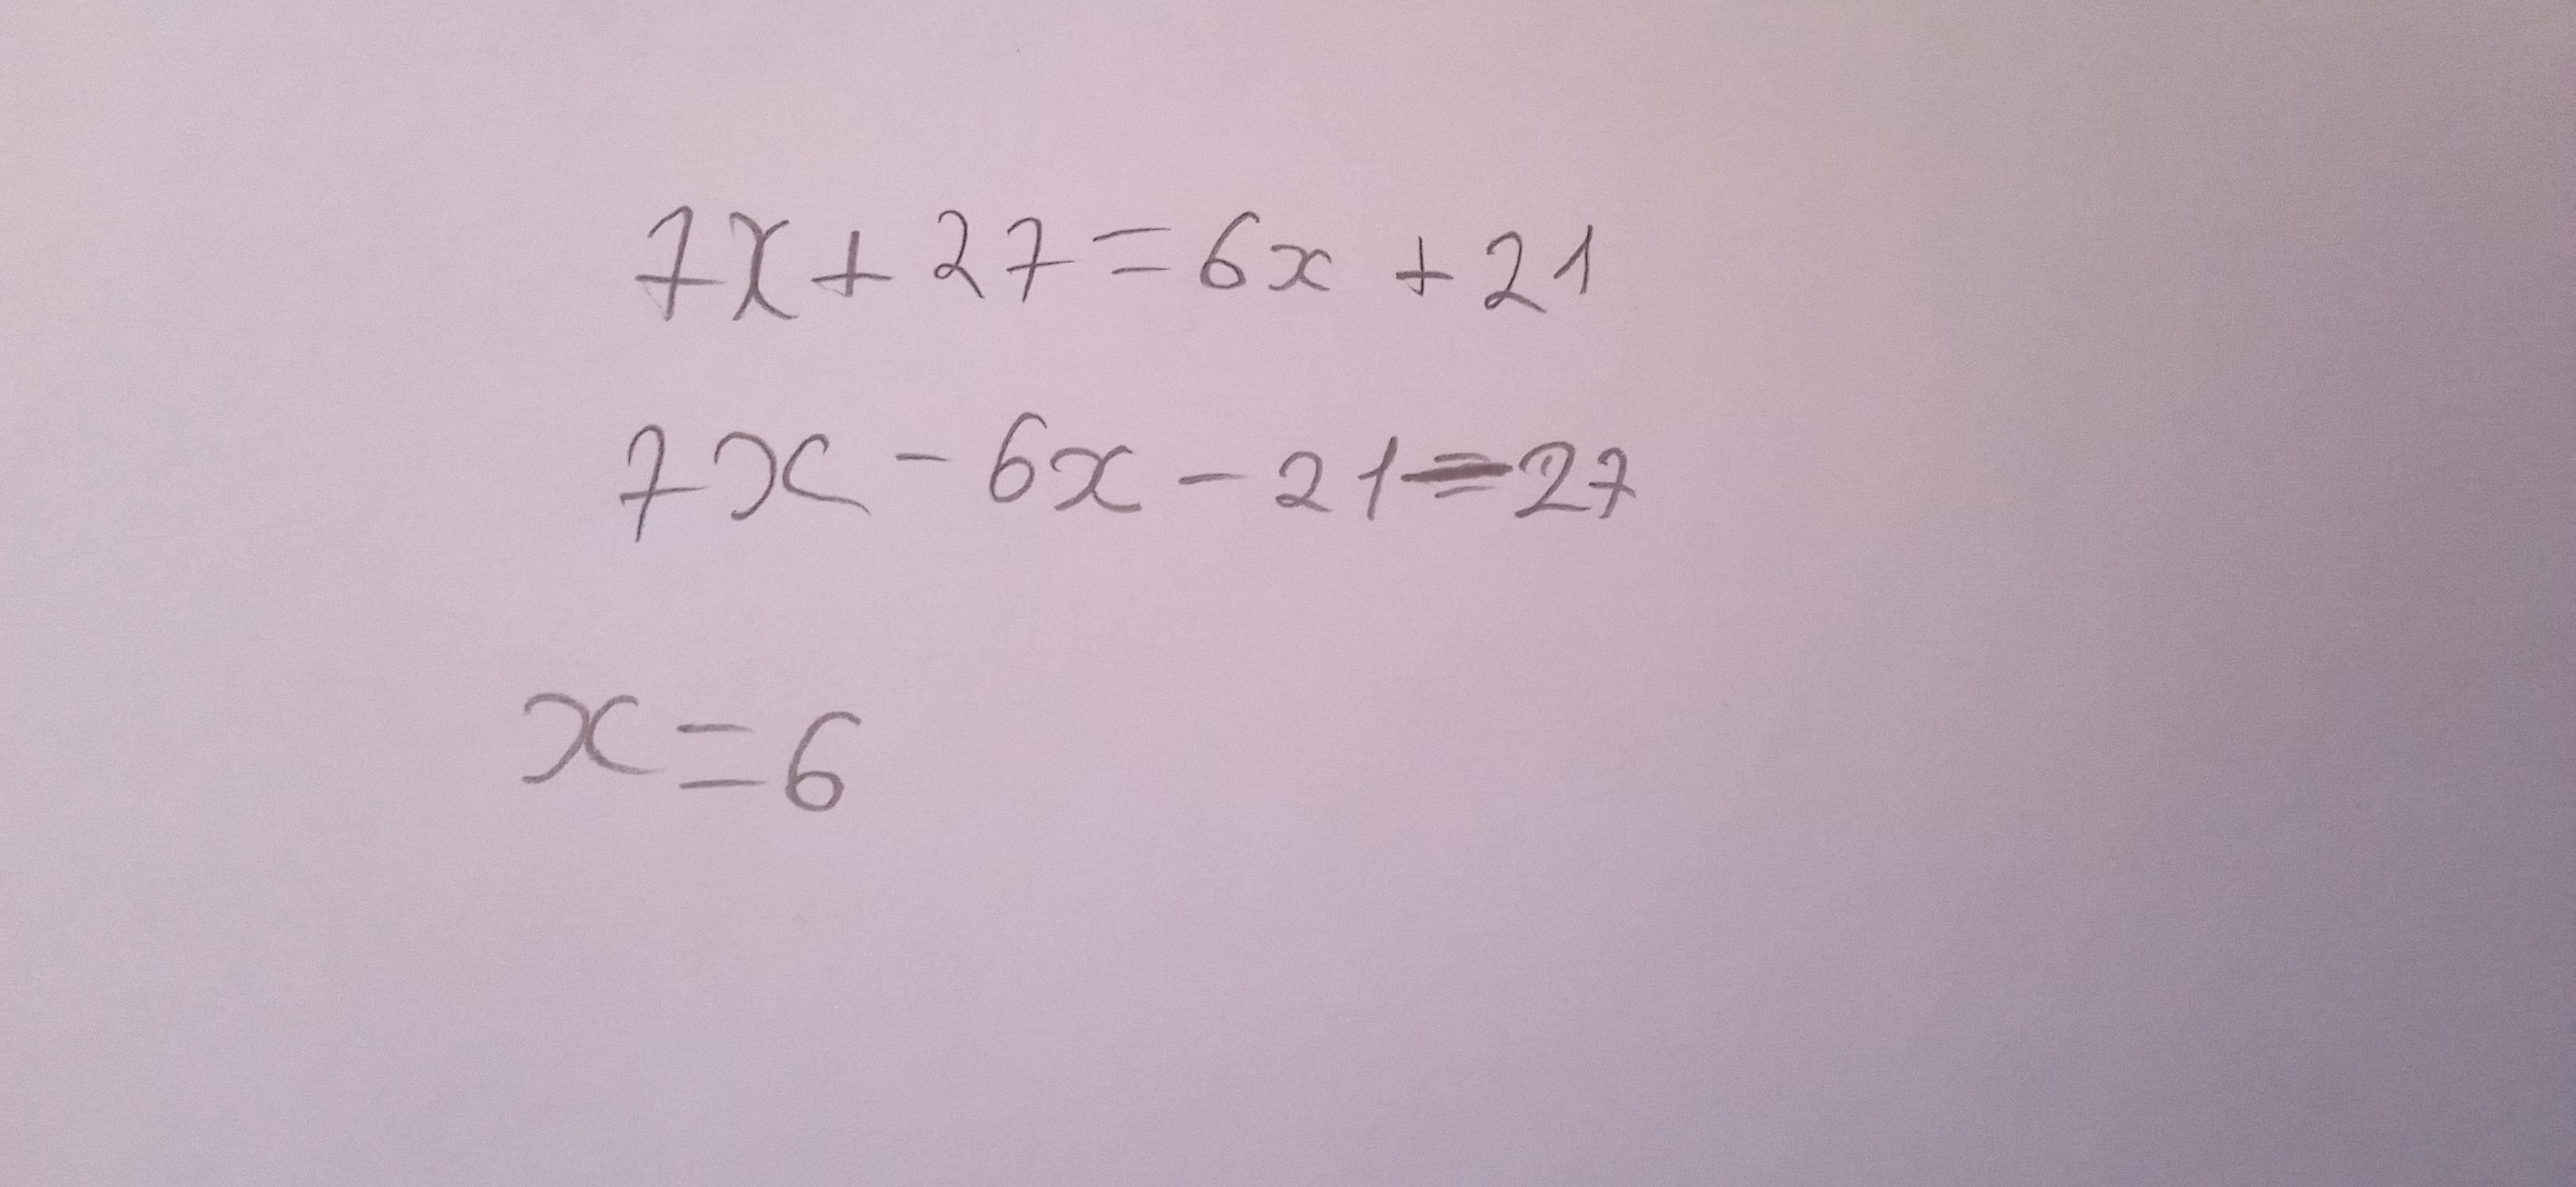 7x + 27 = 6x + 21
7x - 6x - 21 = 27
x = 6